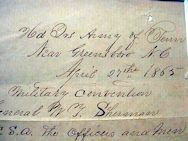 Hd Qrs Army of Tenn
Near Greensboro N.C
April 27th 1865
Military Convention
General W. T. Sherman
C.S.A. the officers and men